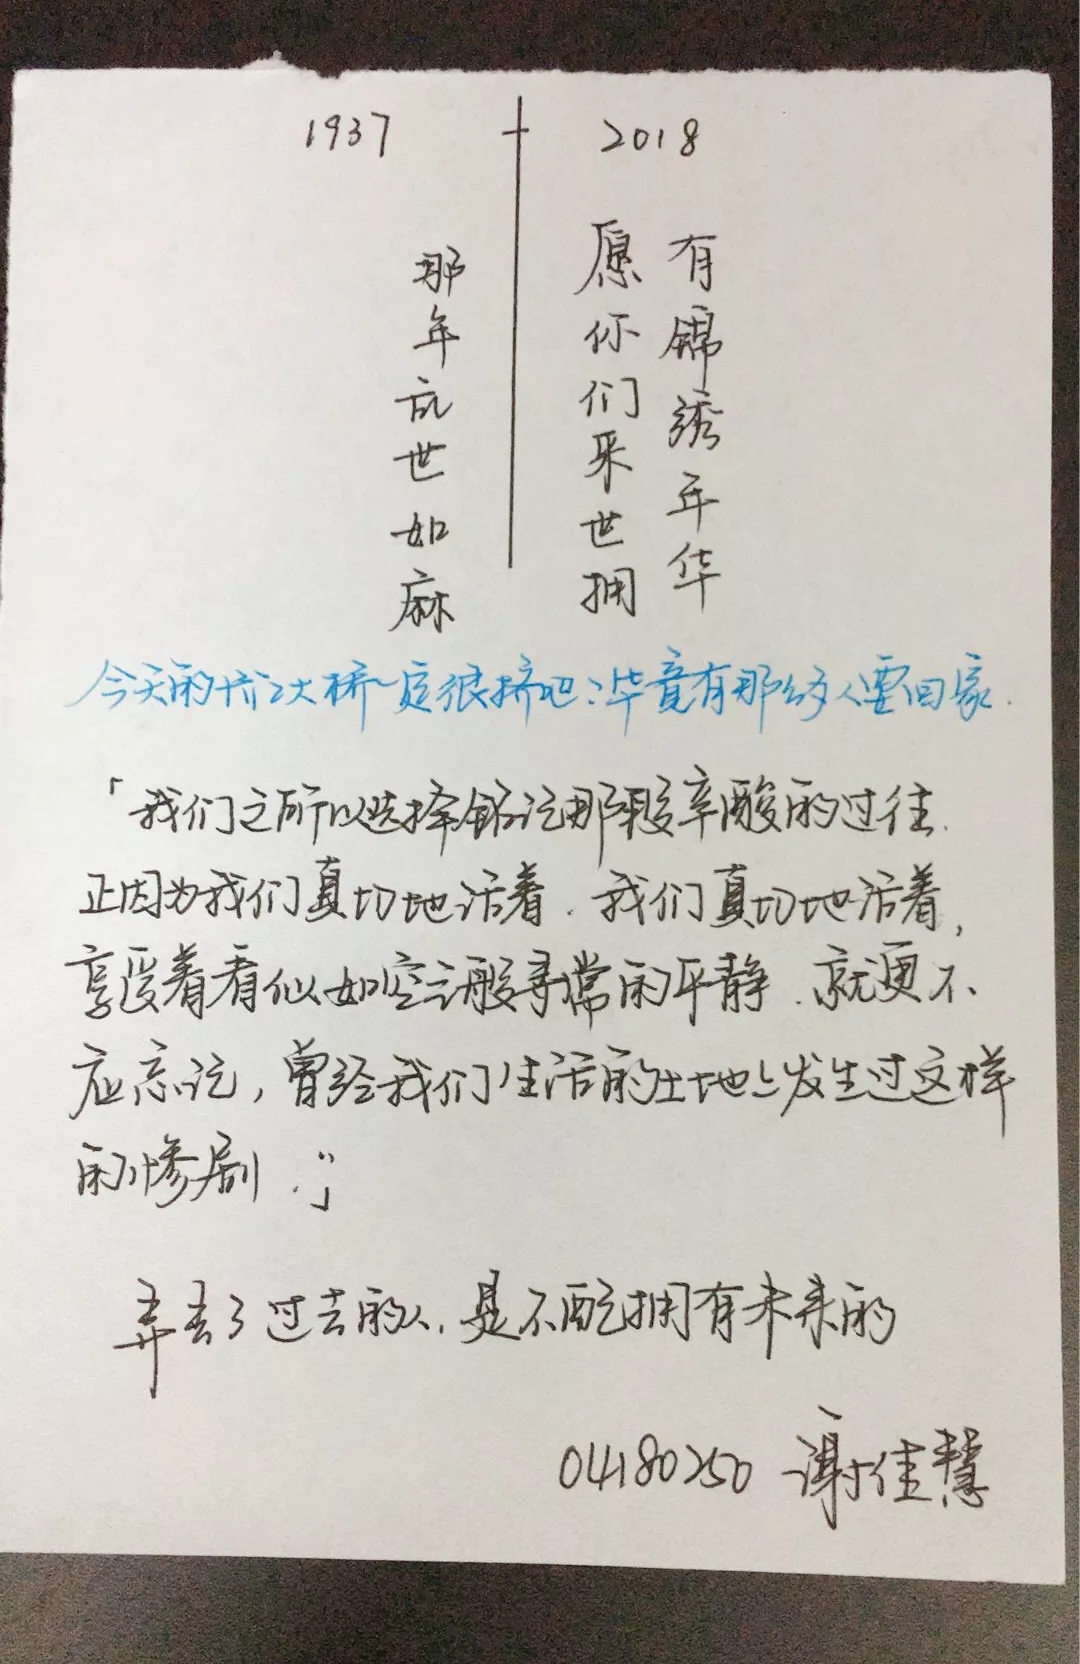 1937
2018
那年乱世如麻
愿你们来世拥
有锦绣年华
今天的长江大桥一定很挤吧;毕竟有那么多人要回家.
「我们之所以选择铭记那段辛酸的过往.
正因为我们真切地活着.我们真切地活着,
享受着看似如空气般寻常的平静.就更不
应忘记,曾经我们生活的土地上发生过这样
的惨剧.」
弄丢了过去的人,是不配拥有未来的
04180250 谢佳慧